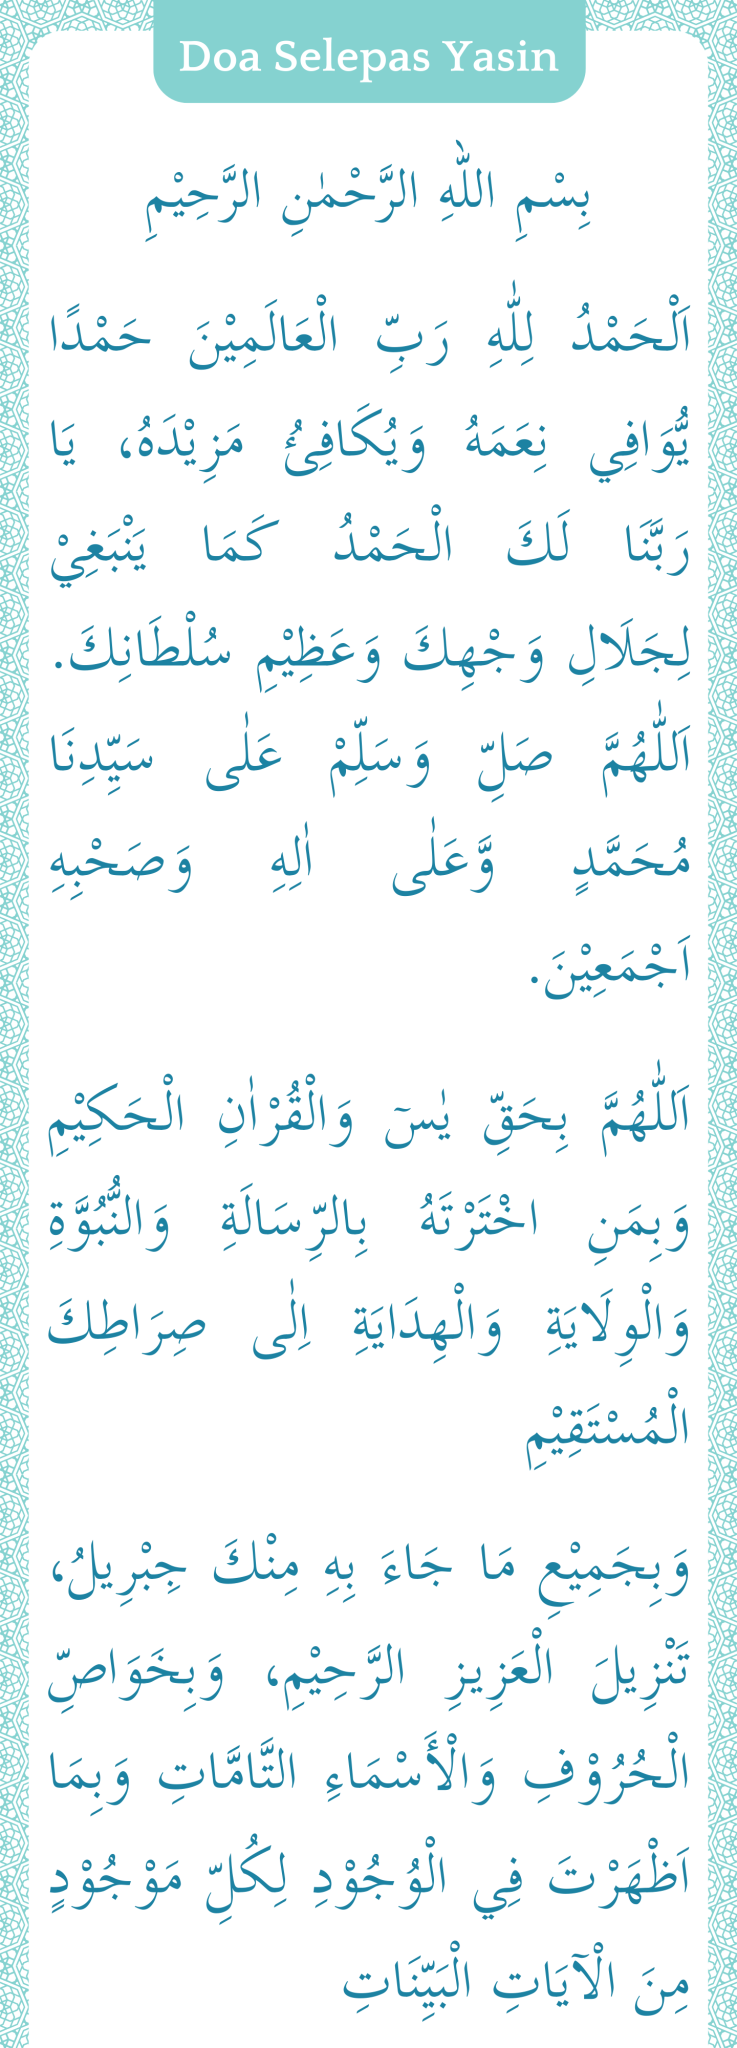 Doa Selepas Yasin
بِسْمِ اللّٰهِ الرَّحْمٰنِ الرَّحِيْمِ
اَلْحَمْدُ لِلّٰهِ رَبِّ الْعَالَمِيْنَ حَمْدًا
يُّوَافِي نِعَمَهُ وَيُكَافِئُ مَزِيْدَهُ، يَا
رَبَّنَا لَكَ الْحَمْدُ كَمَا يَنْبَغِيْ
لِجَلَالِ وَجْهِكَ وَعَظِيْمِ سُلْطَانِكَ.
اَللّٰهُمَّ صَلِّ وَسَلِّمْ عَلٰى سَيِّدِنَا
مُحَمَّدٍ وَّعَلٰى اٰلِهِ وَصَحْبِهِ
اَجْمَعِيْنَ.
اَللّٰهُمَّ بِحَقِّ يٰسٓ وَالْقُرْاٰنِ الْحَكِيْمِ
وَبِمَنِ اخْتَرْتَهُ بِالرِّسَالَةِ وَالنُّبُوَّةِ
وَالْوِلَايَةِ وَالْهِدَايَةِ اِلٰى صِرَاطِكَ
الْمُسْتَقِيْمِ
وَبِجَمِيْعِ مَا جَاءَ بِهِ مِنْكَ جِبْرِيلُ،
تَنْزِيلَ الْعَزِيزِ الرَّحِيْمِ، وَبِخَوَاصِّ
الْحُرُوْفِ وَالْأَسْمَاءِ التَّامَّاتِ وَبِمَا
اَظْهَرْتَ فِي الْوُجُوْدِ لِكُلِّ مَوْجُوْدٍ
مِنَ الْآيَاتِ الْبَيِّنَاتِ